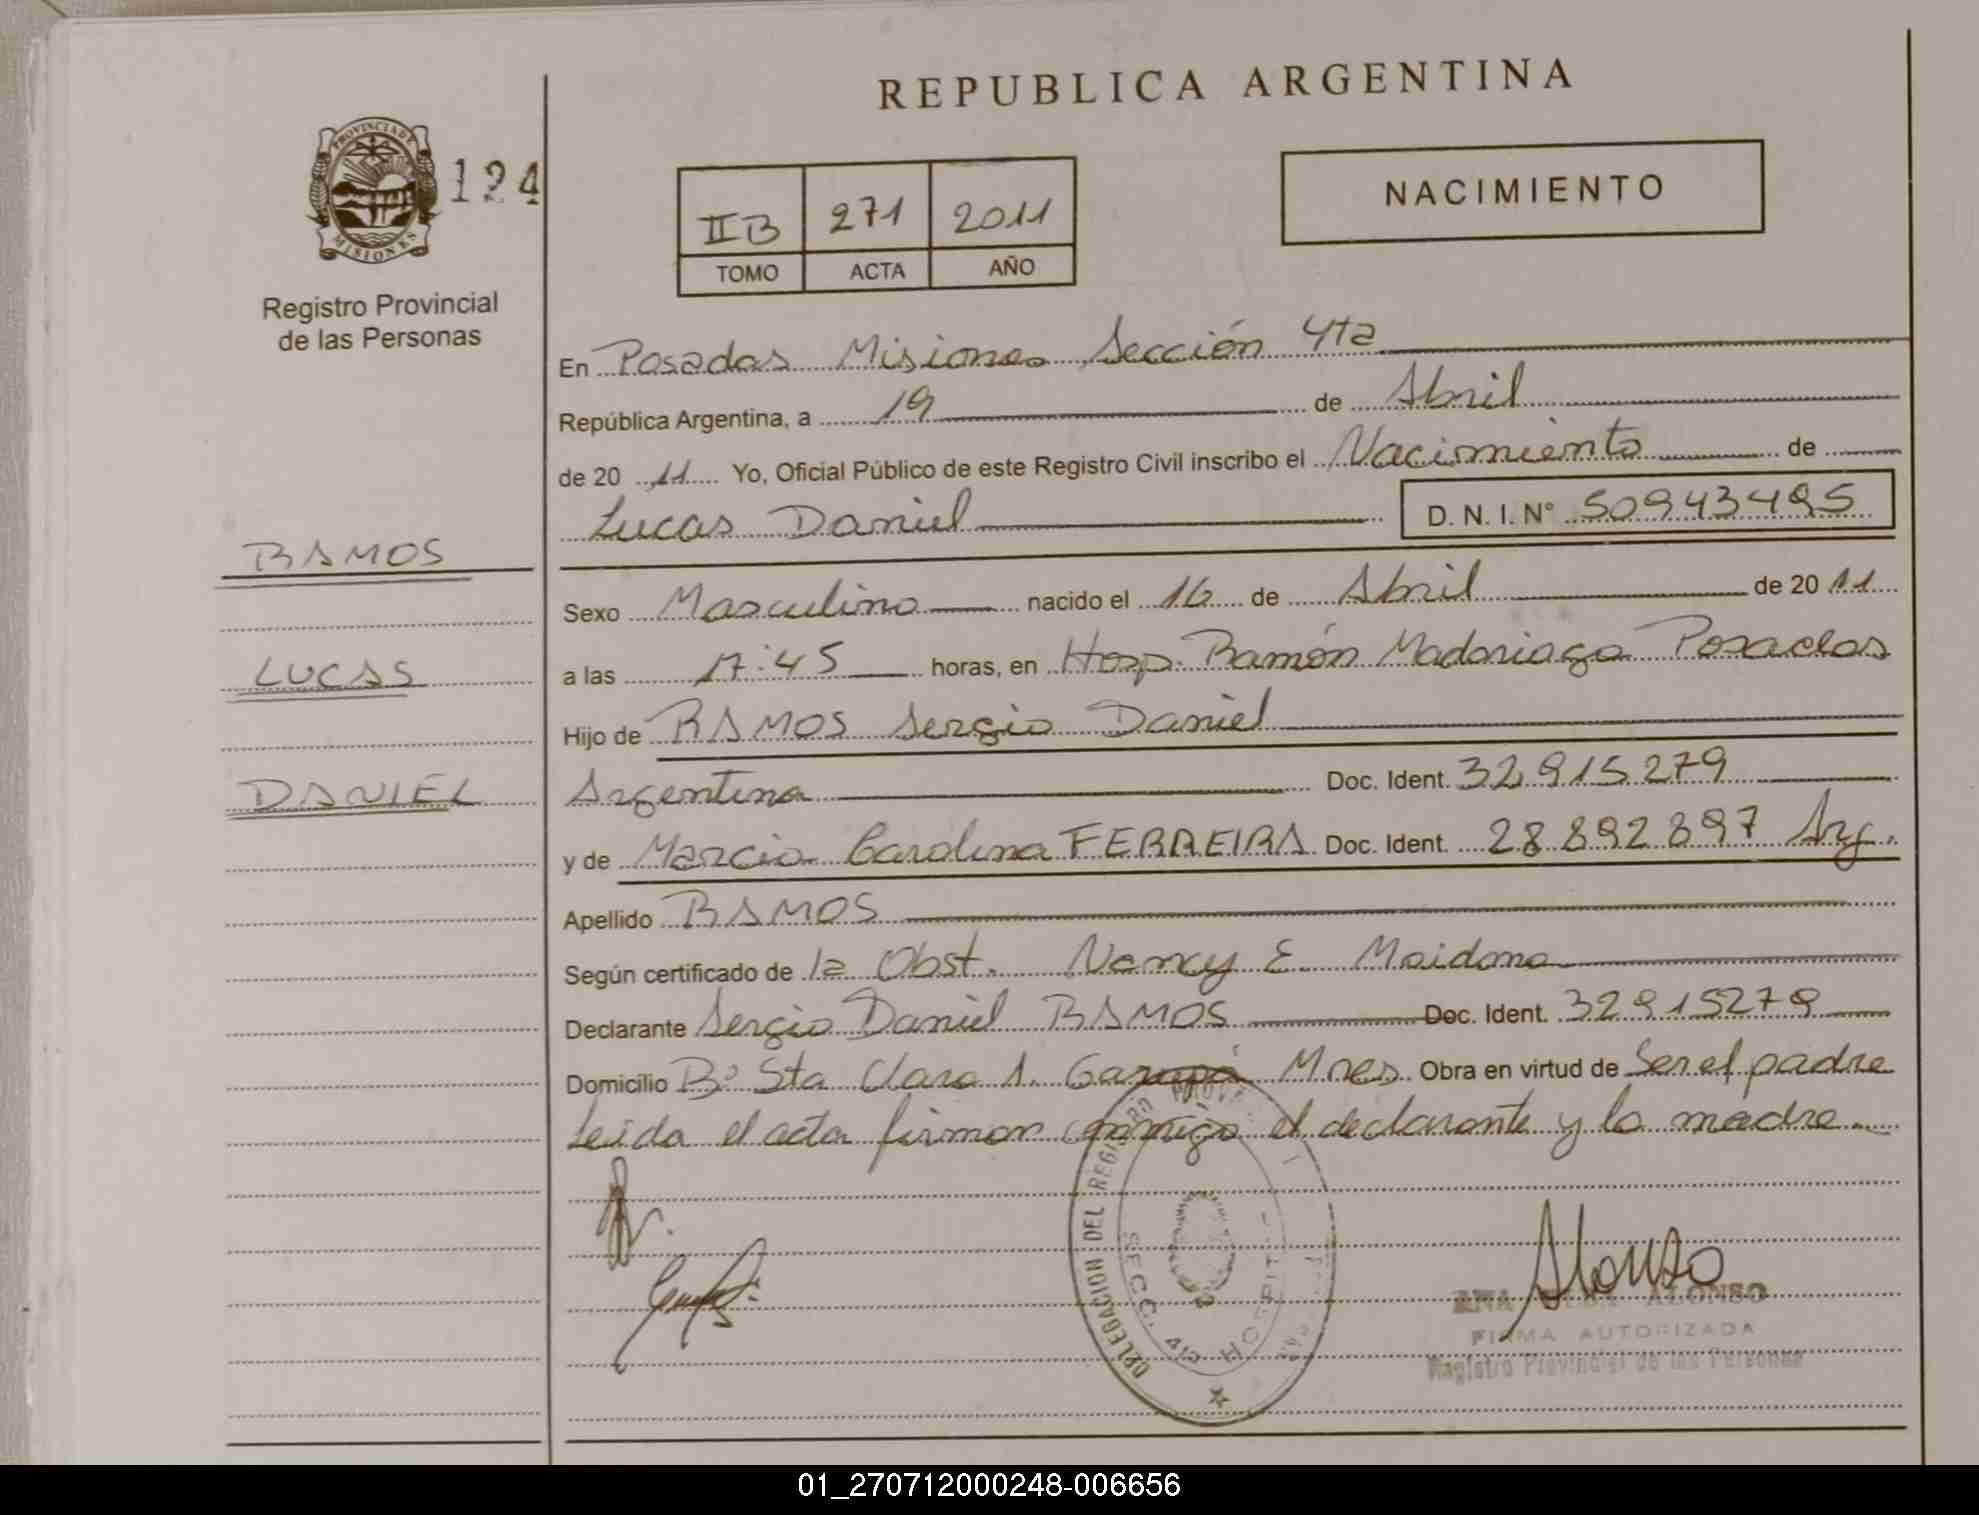 REPUBLICA ARGENTINA
PROVINCIA DE
MISIONES
124
Registro Provincial
de las Personas
IIB 271 2011
TOMO ACTA AÑO
NACIMIENTO
En Posadas Misiones, Sección 4ta
República Argentina, a 19 de Abril
de 20 11 Yo, Oficial Público de este Registro Civil inscribo el Nacimiento de
Lucas Daniel D. N. I. N° 50943495
RAMOS
LUCAS
DANIEL
Sexo Masculino nacido el 16 de Abril de 20 11
a las 17:45 horas, en Hosp. Ramón Madariaga Posadas
Hijo de RAMOS Sergio Daniel
Argentina Doc. Ident. 32915279
y de Marcia Carolina FERREIRA Doc. Ident. 28892897 Arg.
Apellido RAMOS
Según certificado de la Obst. Nancy E. Maidana
Declarante Sergio Daniel RAMOS Doc. Ident. 32915279
Domicilio B° Sta Clara 1. Garupá Mnes. Obra en virtud de Ser el padre
Leida el acta firman conmigo el declarante y la madre
DELEGACION DEL REGISTRO
SECC. 4ta HOSPITAL
Alonso
ANA ALONSO
FIRMA AUTORIZADA
Registro Provincial de las Personas
01_270712000248-006656